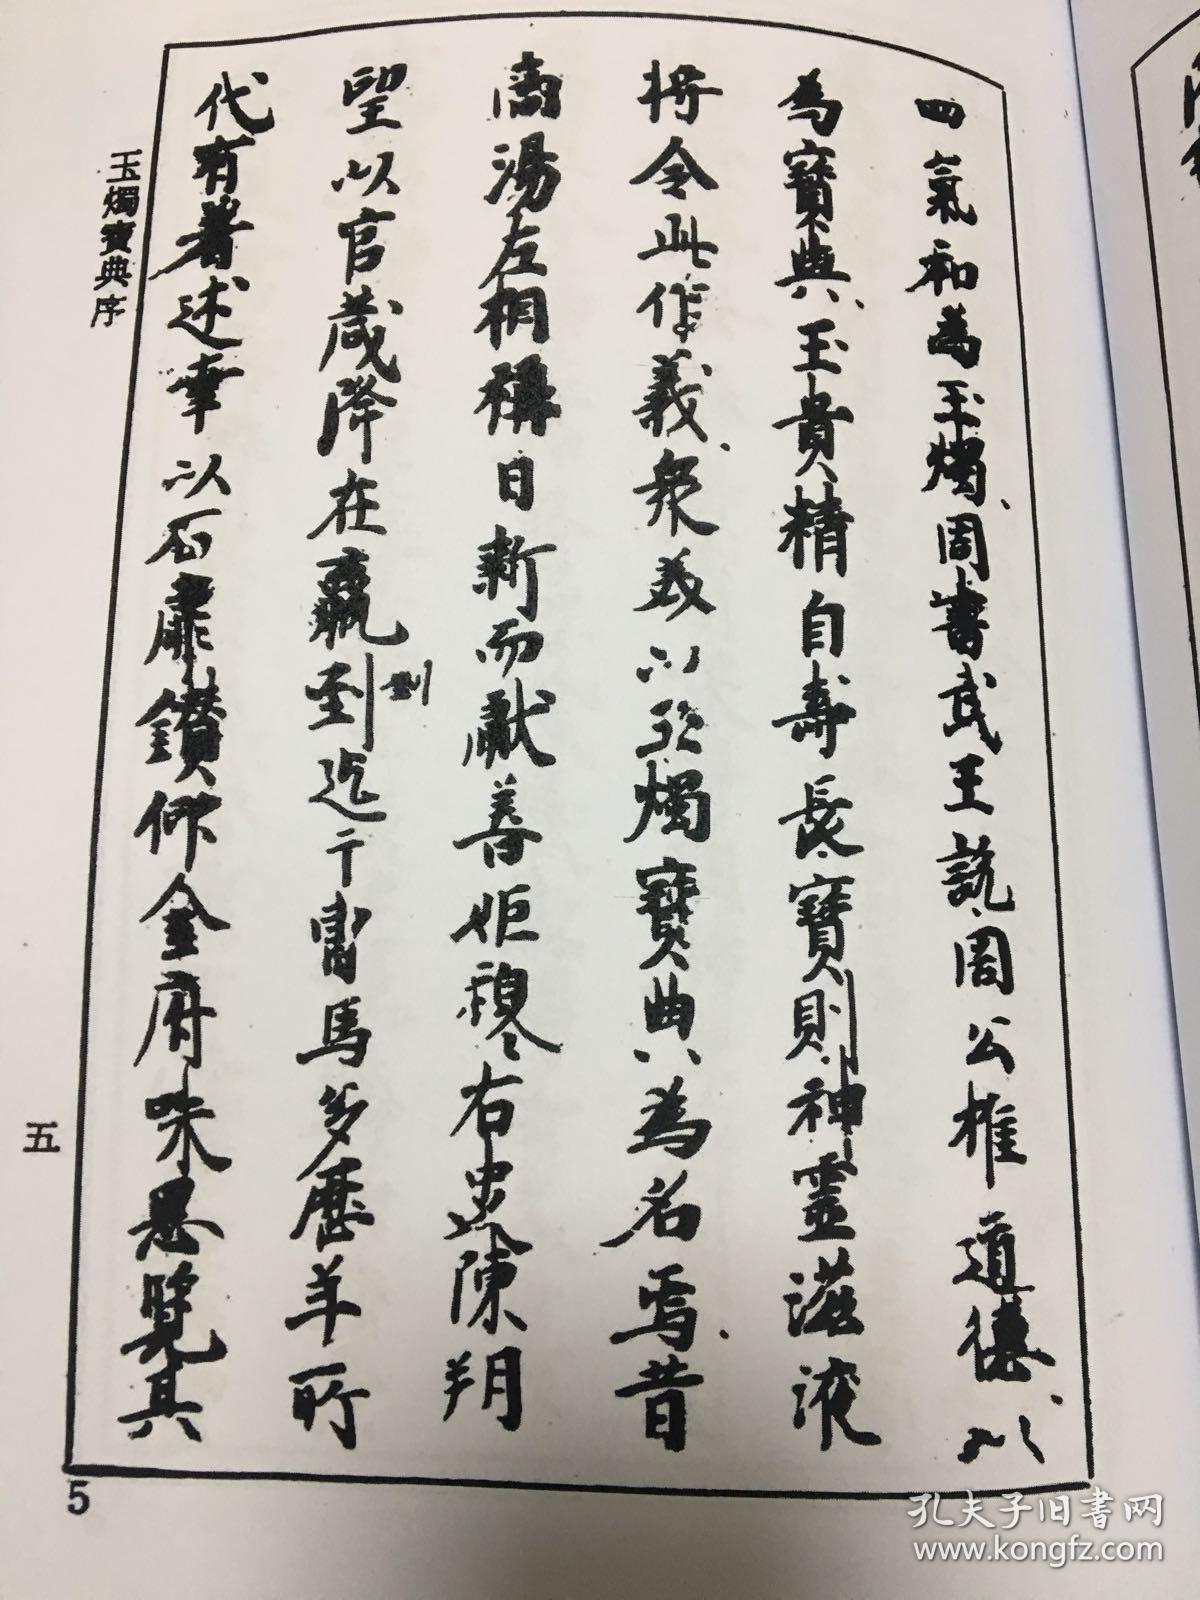 四氣和為玉燭周書武王說周公推道德以
為寶典玉貴精自壽長寶則神靈滋液
將令此作義兼衆美以玉燭寶典為名焉昔
商湯左相稱日新而獻善姬穆右史陳朔
望以官箴降在嬴劉迄于曹馬多歷年所
代有著述幸以石扉鑽仰金府味思覽其
玉燭寶典序
五
5
孔夫子旧书网
www.kongfz.com